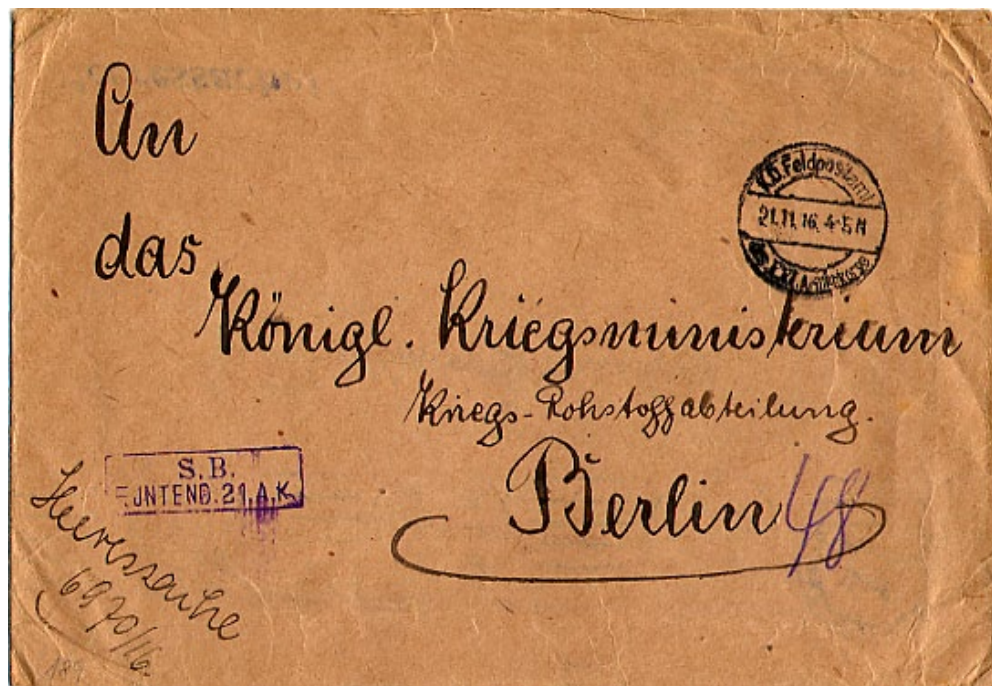 An
das
Königl. Kriegsministerium
Kriegs-Rohstoffabteilung.
Berlin 48
K.D. Feldpostamt
21.11.16. 4-5 N
des XXI. Armeekorps
S.B.
F. JNTEND. 21. A.K.
Heeressache
6970/16.
189